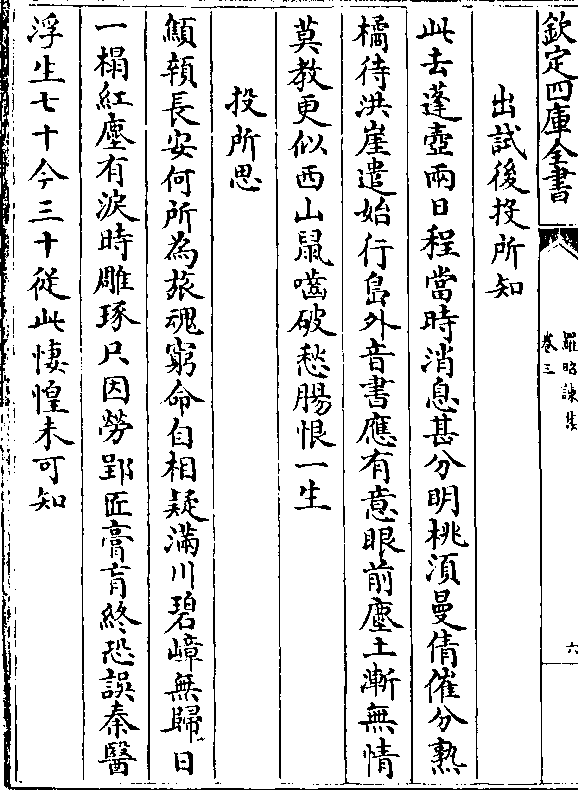 欽定四庫全書
羅昭諫集
卷三
六
出試後投所知
此去蓬壺兩日程當時消息甚分明桃須曼倩催分熟
橘待洪崖遣始行島外音書應有意眼前塵土漸無情
莫教更似西山鼠嚙破愁腸恨一生
投所思
顦顇長安何所為旅魂窮命自相疑滿川碧嶂無歸日
一榻紅塵有淚時雕琢只因勞郢匠膏肓終恐誤秦醫
浮生七十今三十從此悽惶未可知